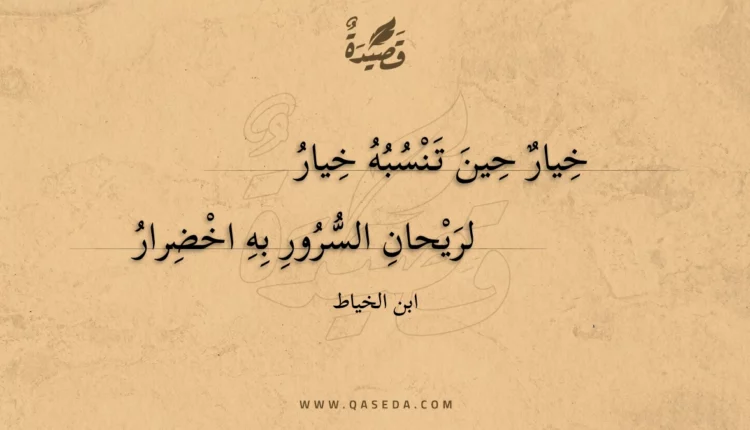 قَصِيدَةٌ
خِيارٌ حِينَ تَنْسُبُهُ خِيارُ
لرَيْحانِ السُّرُورِ بِهِ اخْضِرارُ
ابن الخياط
WWW.QASEDA.COM